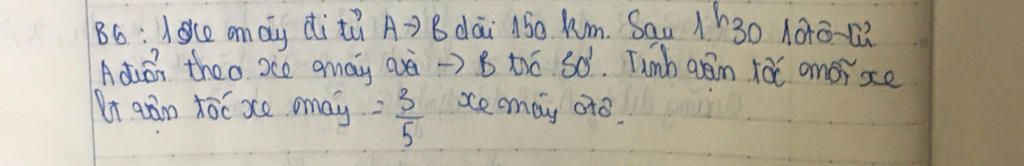 B6: 1 xe máy đi từ A → B dài 150 km. Sau 1h30 1 ôtô từ
A đuổi theo xe máy và → B trc 30'. Tính vận tốc mỗi xe
bt vận tốc xe máy = 3/5 xe máy ôtô.